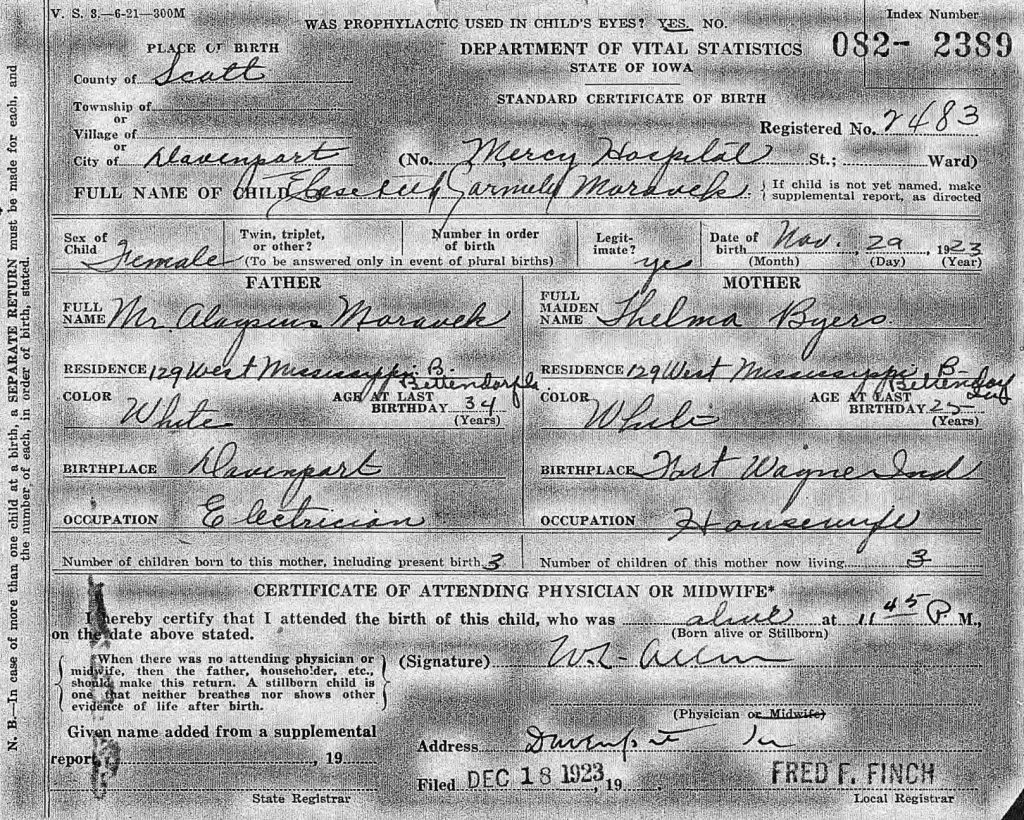 V. S. 8.—6-21—300M
WAS PROPHYLACTIC USED IN CHILD'S EYES? YES. NO.
Index Number
082- 2389
PLACE OF BIRTH
DEPARTMENT OF VITAL STATISTICS
STATE OF IOWA
County of Scott
STANDARD CERTIFICATE OF BIRTH
Township of
or
Village of
or
Registered No. 2483
City of Davenport (No. Mercy Hospital St.; Ward)
FULL NAME OF CHILD Moravek
If child is not yet named, make
supplemental report, as directed
Sex of Child Female
Twin, triplet, or other?
Number in order of birth
(To be answered only in event of plural births)
Legitimate? yes
Date of birth Nov. 29, 1923
(Month) (Day) (Year)
FATHER
FULL NAME Mr. Aloysius Moravek
RESIDENCE 129 West Mississippi B.
Bettendorf Ia
COLOR White
AGE AT LAST BIRTHDAY 34
(Years)
BIRTHPLACE Davenport
OCCUPATION Electrician
Number of children born to this mother, including present birth 3
MOTHER
FULL MAIDEN NAME Thelma Byers
RESIDENCE 129 West Mississippi B-
Bettendorf
COLOR White
AGE AT LAST BIRTHDAY 25
(Years)
BIRTHPLACE Fort Wayne Ind
OCCUPATION Housewife
Number of children of this mother now living 3
CERTIFICATE OF ATTENDING PHYSICIAN OR MIDWIFE*
I hereby certify that I attended the birth of this child, who was alive at 11 45 P M.,
(Born alive or Stillborn)
on the date above stated.
When there was no attending physician or
midwife, then the father, householder, etc.,
should make this return. A stillborn child is
one that neither breathes nor shows other
evidence of life after birth.
(Signature) W.L. Allen
(Physician or Midwife)
Given name added from a supplemental
report, 19
State Registrar
Address Davenport Ia
Filed DEC 18 1923, 19
FRED F. FINCH
Local Registrar
N. B.—In case of more than one child at a birth, a SEPARATE RETURN must be made for each, and
the number of each, in order of birth, stated.